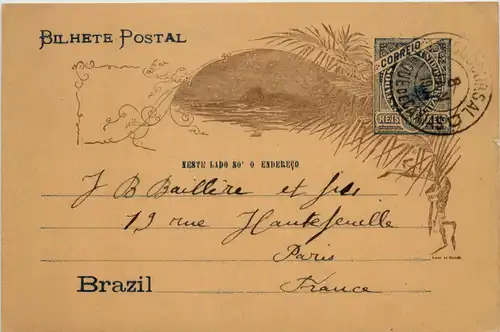 BILHETE POSTAL
CORREIO
REIS
NESTE LADO SO' O ENDEREÇO
J B Baillière et fils
19 rue Hautefeuille
Paris
Brazil
France